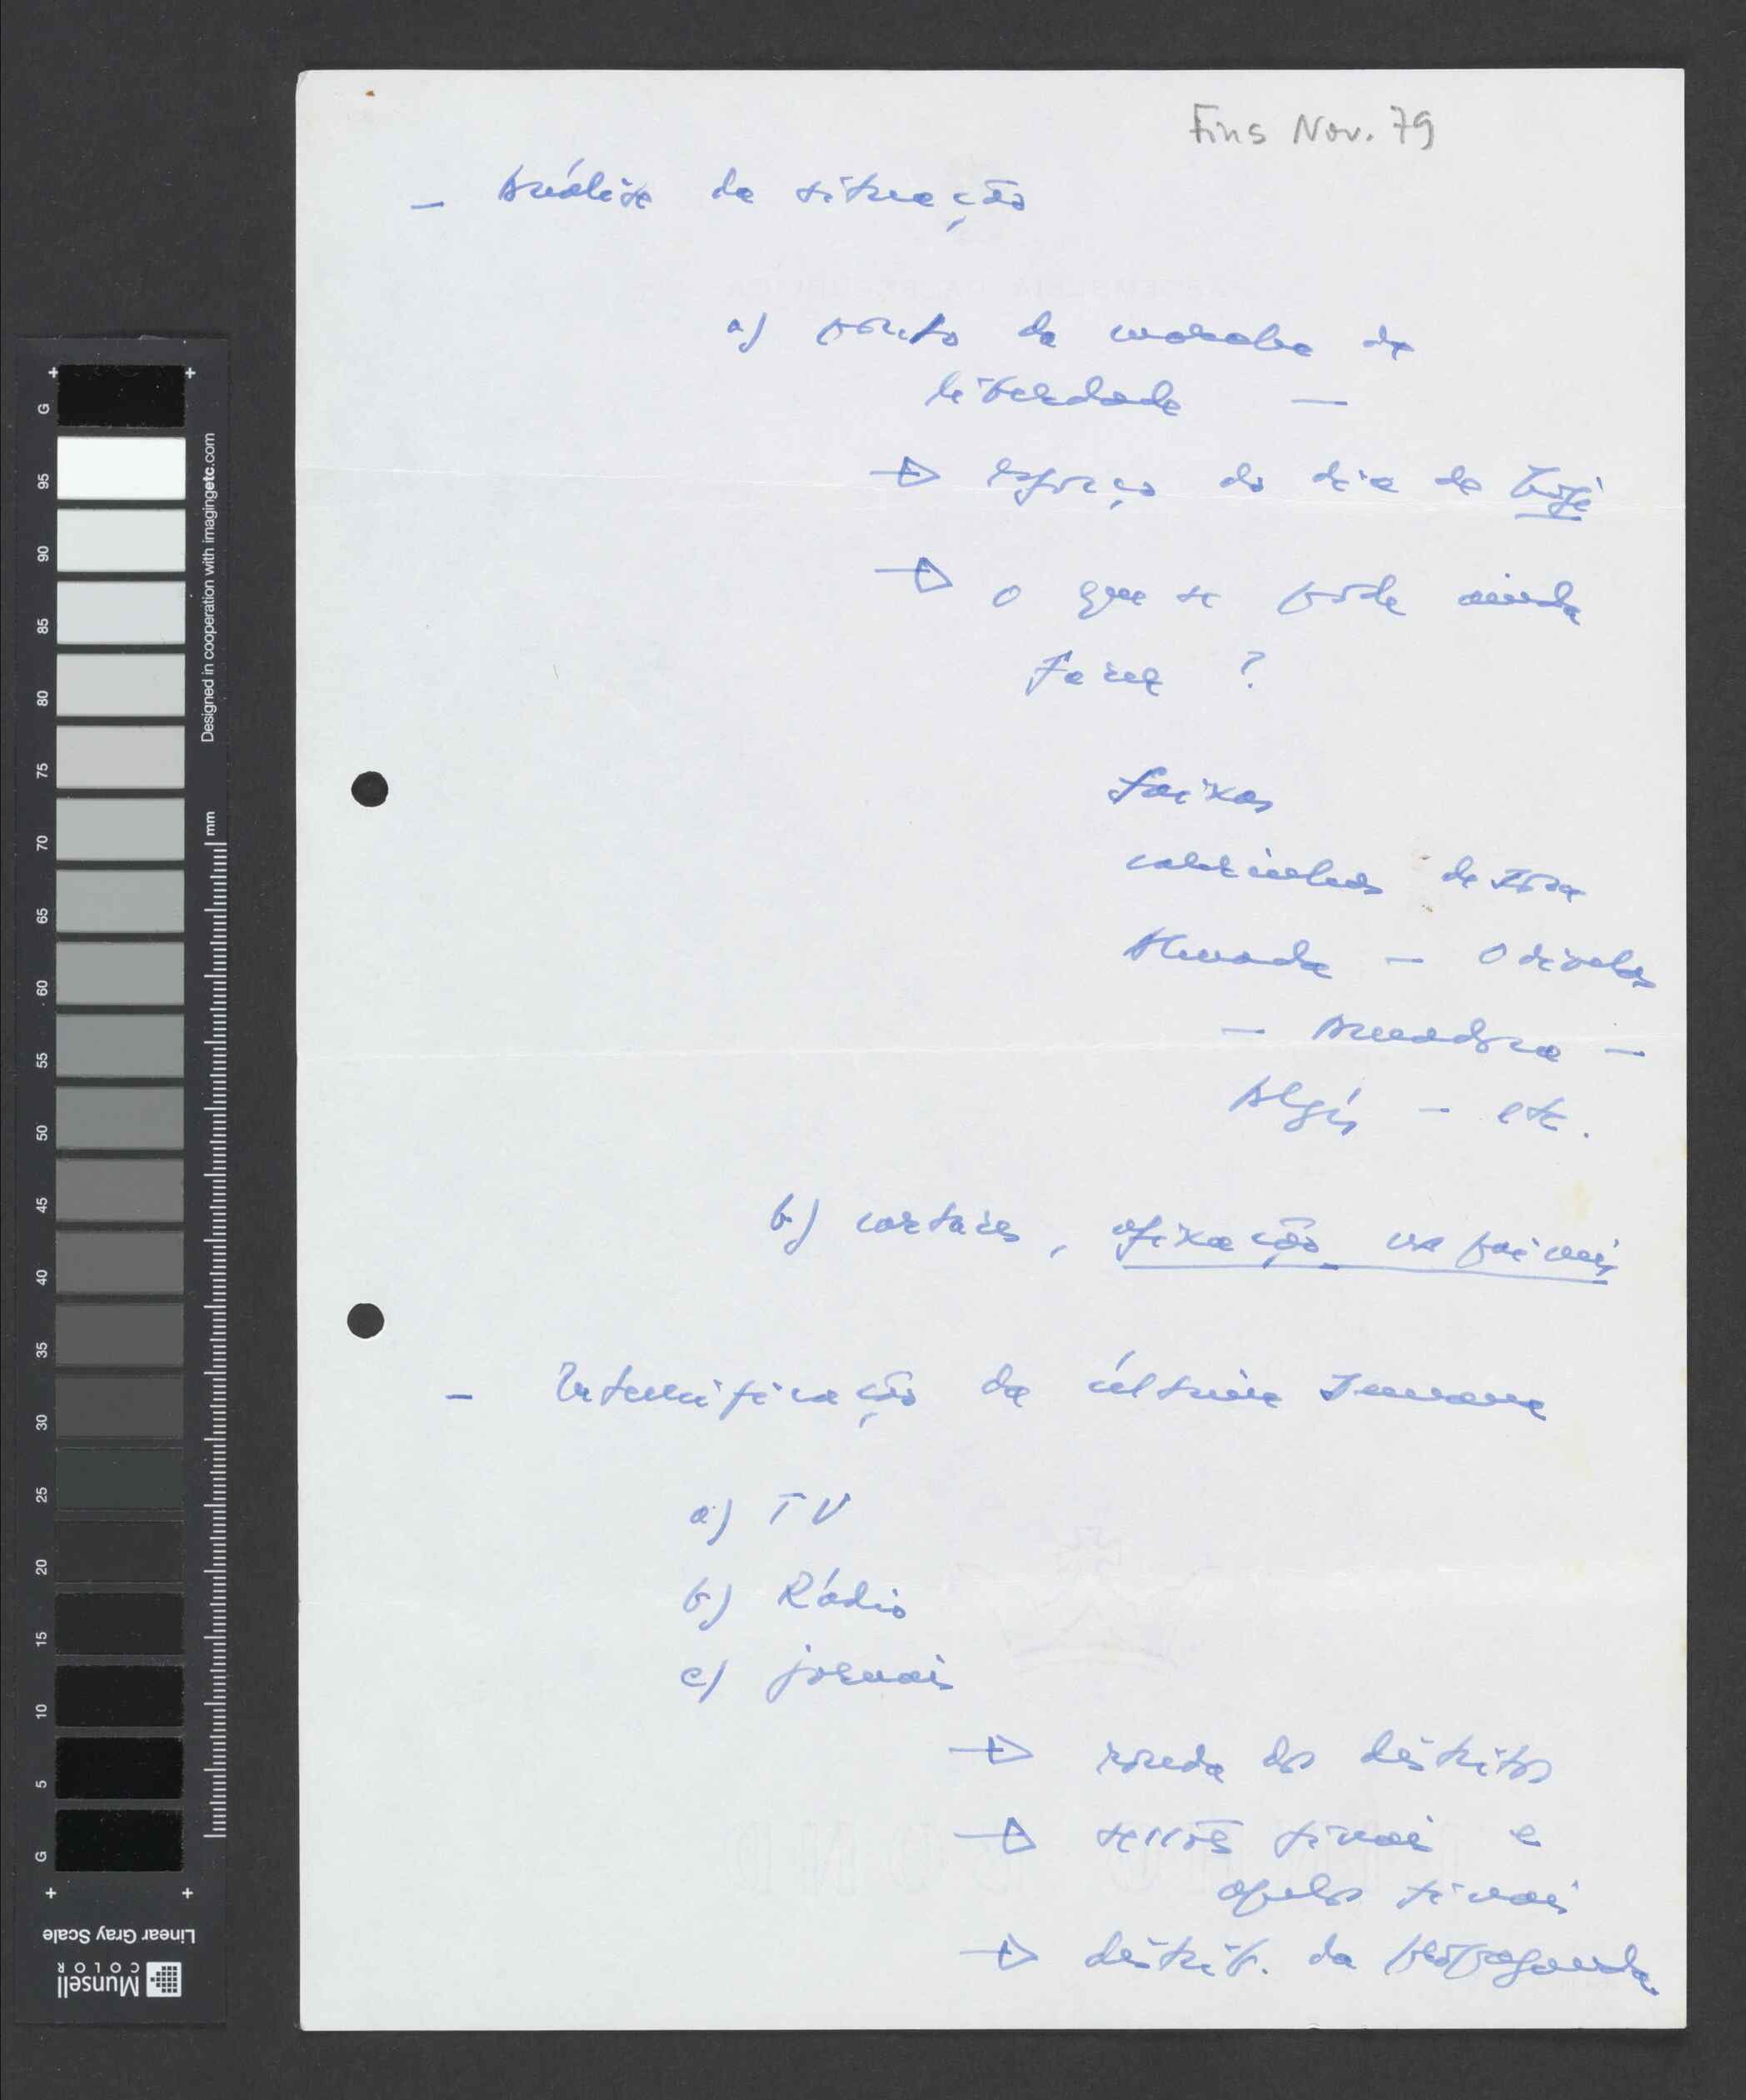 Fins Nov. 79
— Análise da situação
a) ponto da marcha da
liberdade —
→ esforço do dia de hoje
→ o que se pode ainda
fazer ?
faixas
carrinhos de
Almada — Odivelas
— Amadora —
Algés — etc.
b) cartazes, afixação nos painéis
— Intensificação da última semana
a) TV
b) Rádio
c) jornais
→ ronda dos distritos
→ sessões finais e
apelos finais
→ distrib. da propaganda
G 95 90 85 80 75 70 65 60 55 50 45 40 35 30 25 20 15 10 5 G
Designed in cooperation with imagingetc.com
mm
Linear Gray Scale
Munsell
COLOR